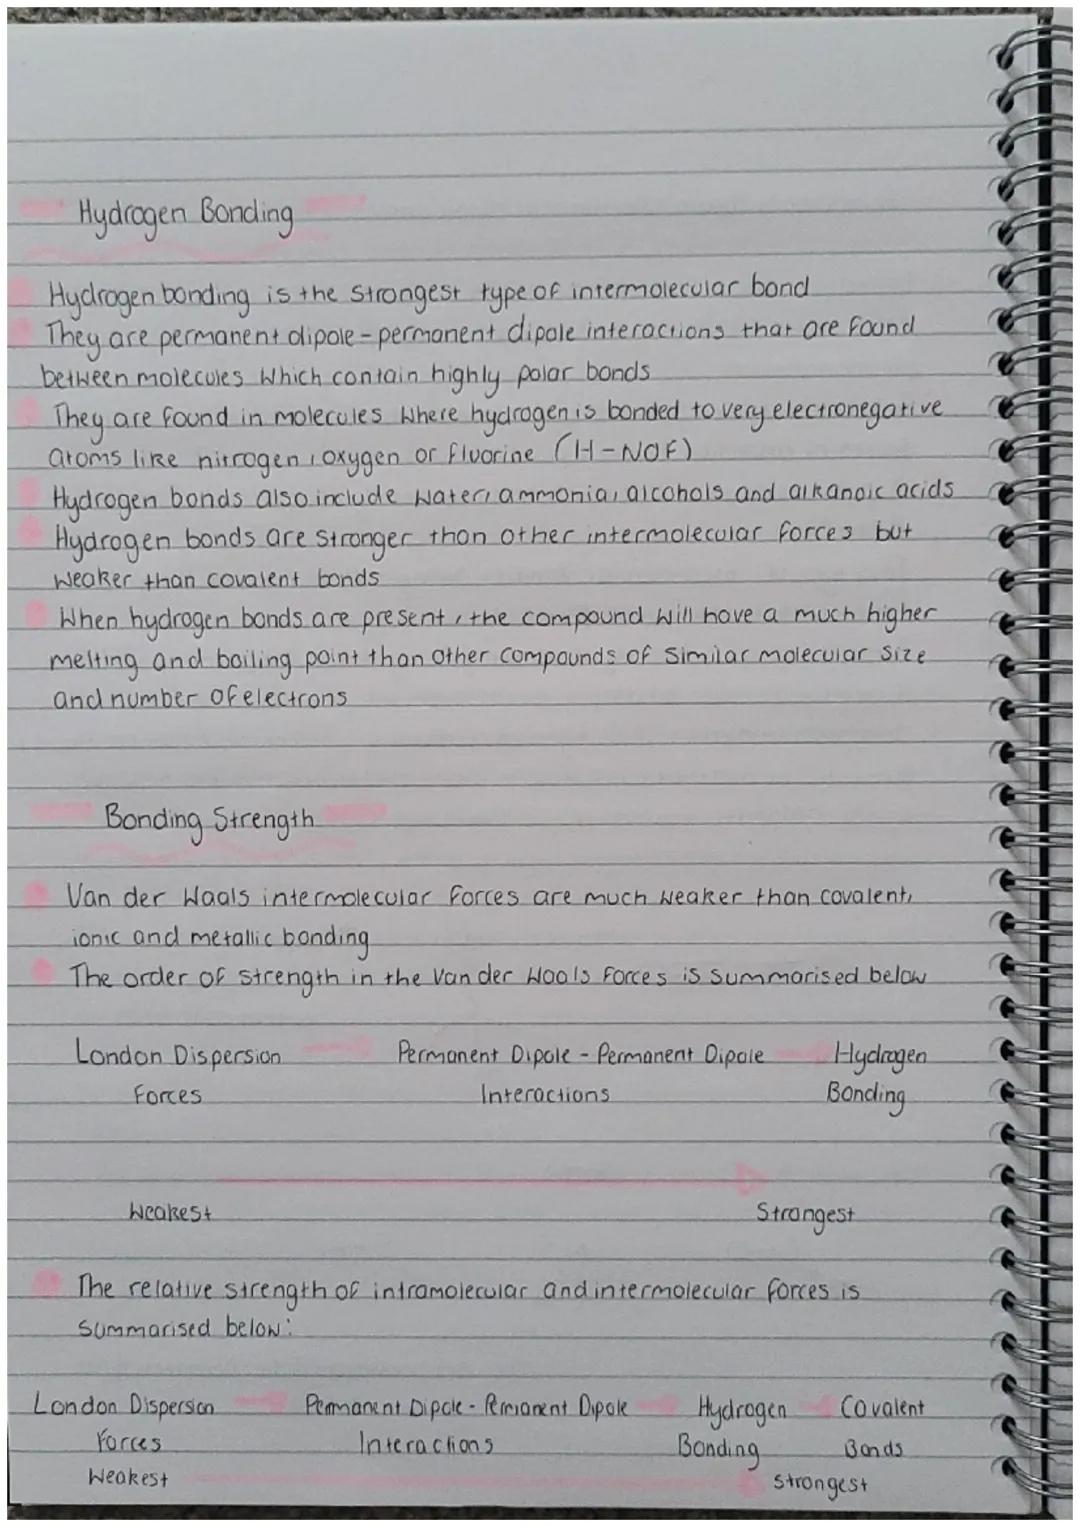 Hydrogen Bonding
Hydrogen bonding is the strongest type of intermolecular bond
They are permanent dipole - permanent dipole interactions that are found
between molecules which contain highly polar bonds
They are found in molecules where hydrogen is bonded to very electronegative
atoms like nitrogen, oxygen or fluorine (H-NOF)
Hydrogen bonds also include water, ammonia, alcohols and alkanoic acids
Hydrogen bonds are stronger than other intermolecular forces but
weaker than covalent bonds
When hydrogen bonds are present, the compound will have a much higher
melting and boiling point than other compounds of similar molecular size
and number of electrons
Bonding Strength
Van der Waals intermolecular forces are much weaker than covalent,
ionic and metallic bonding
The order of strength in the Van der Waals forces is summarised below
London Dispersion Permanent Dipole - Permanent Dipole Hydrogen
Forces Interactions Bonding
Weakest Strongest
The relative strength of intramolecular and intermolecular forces is
summarised below:
London Dispersion Permanent Dipole - Permanent Dipole Hydrogen Covalent
Forces Interactions Bonding Bonds
Weakest Strongest